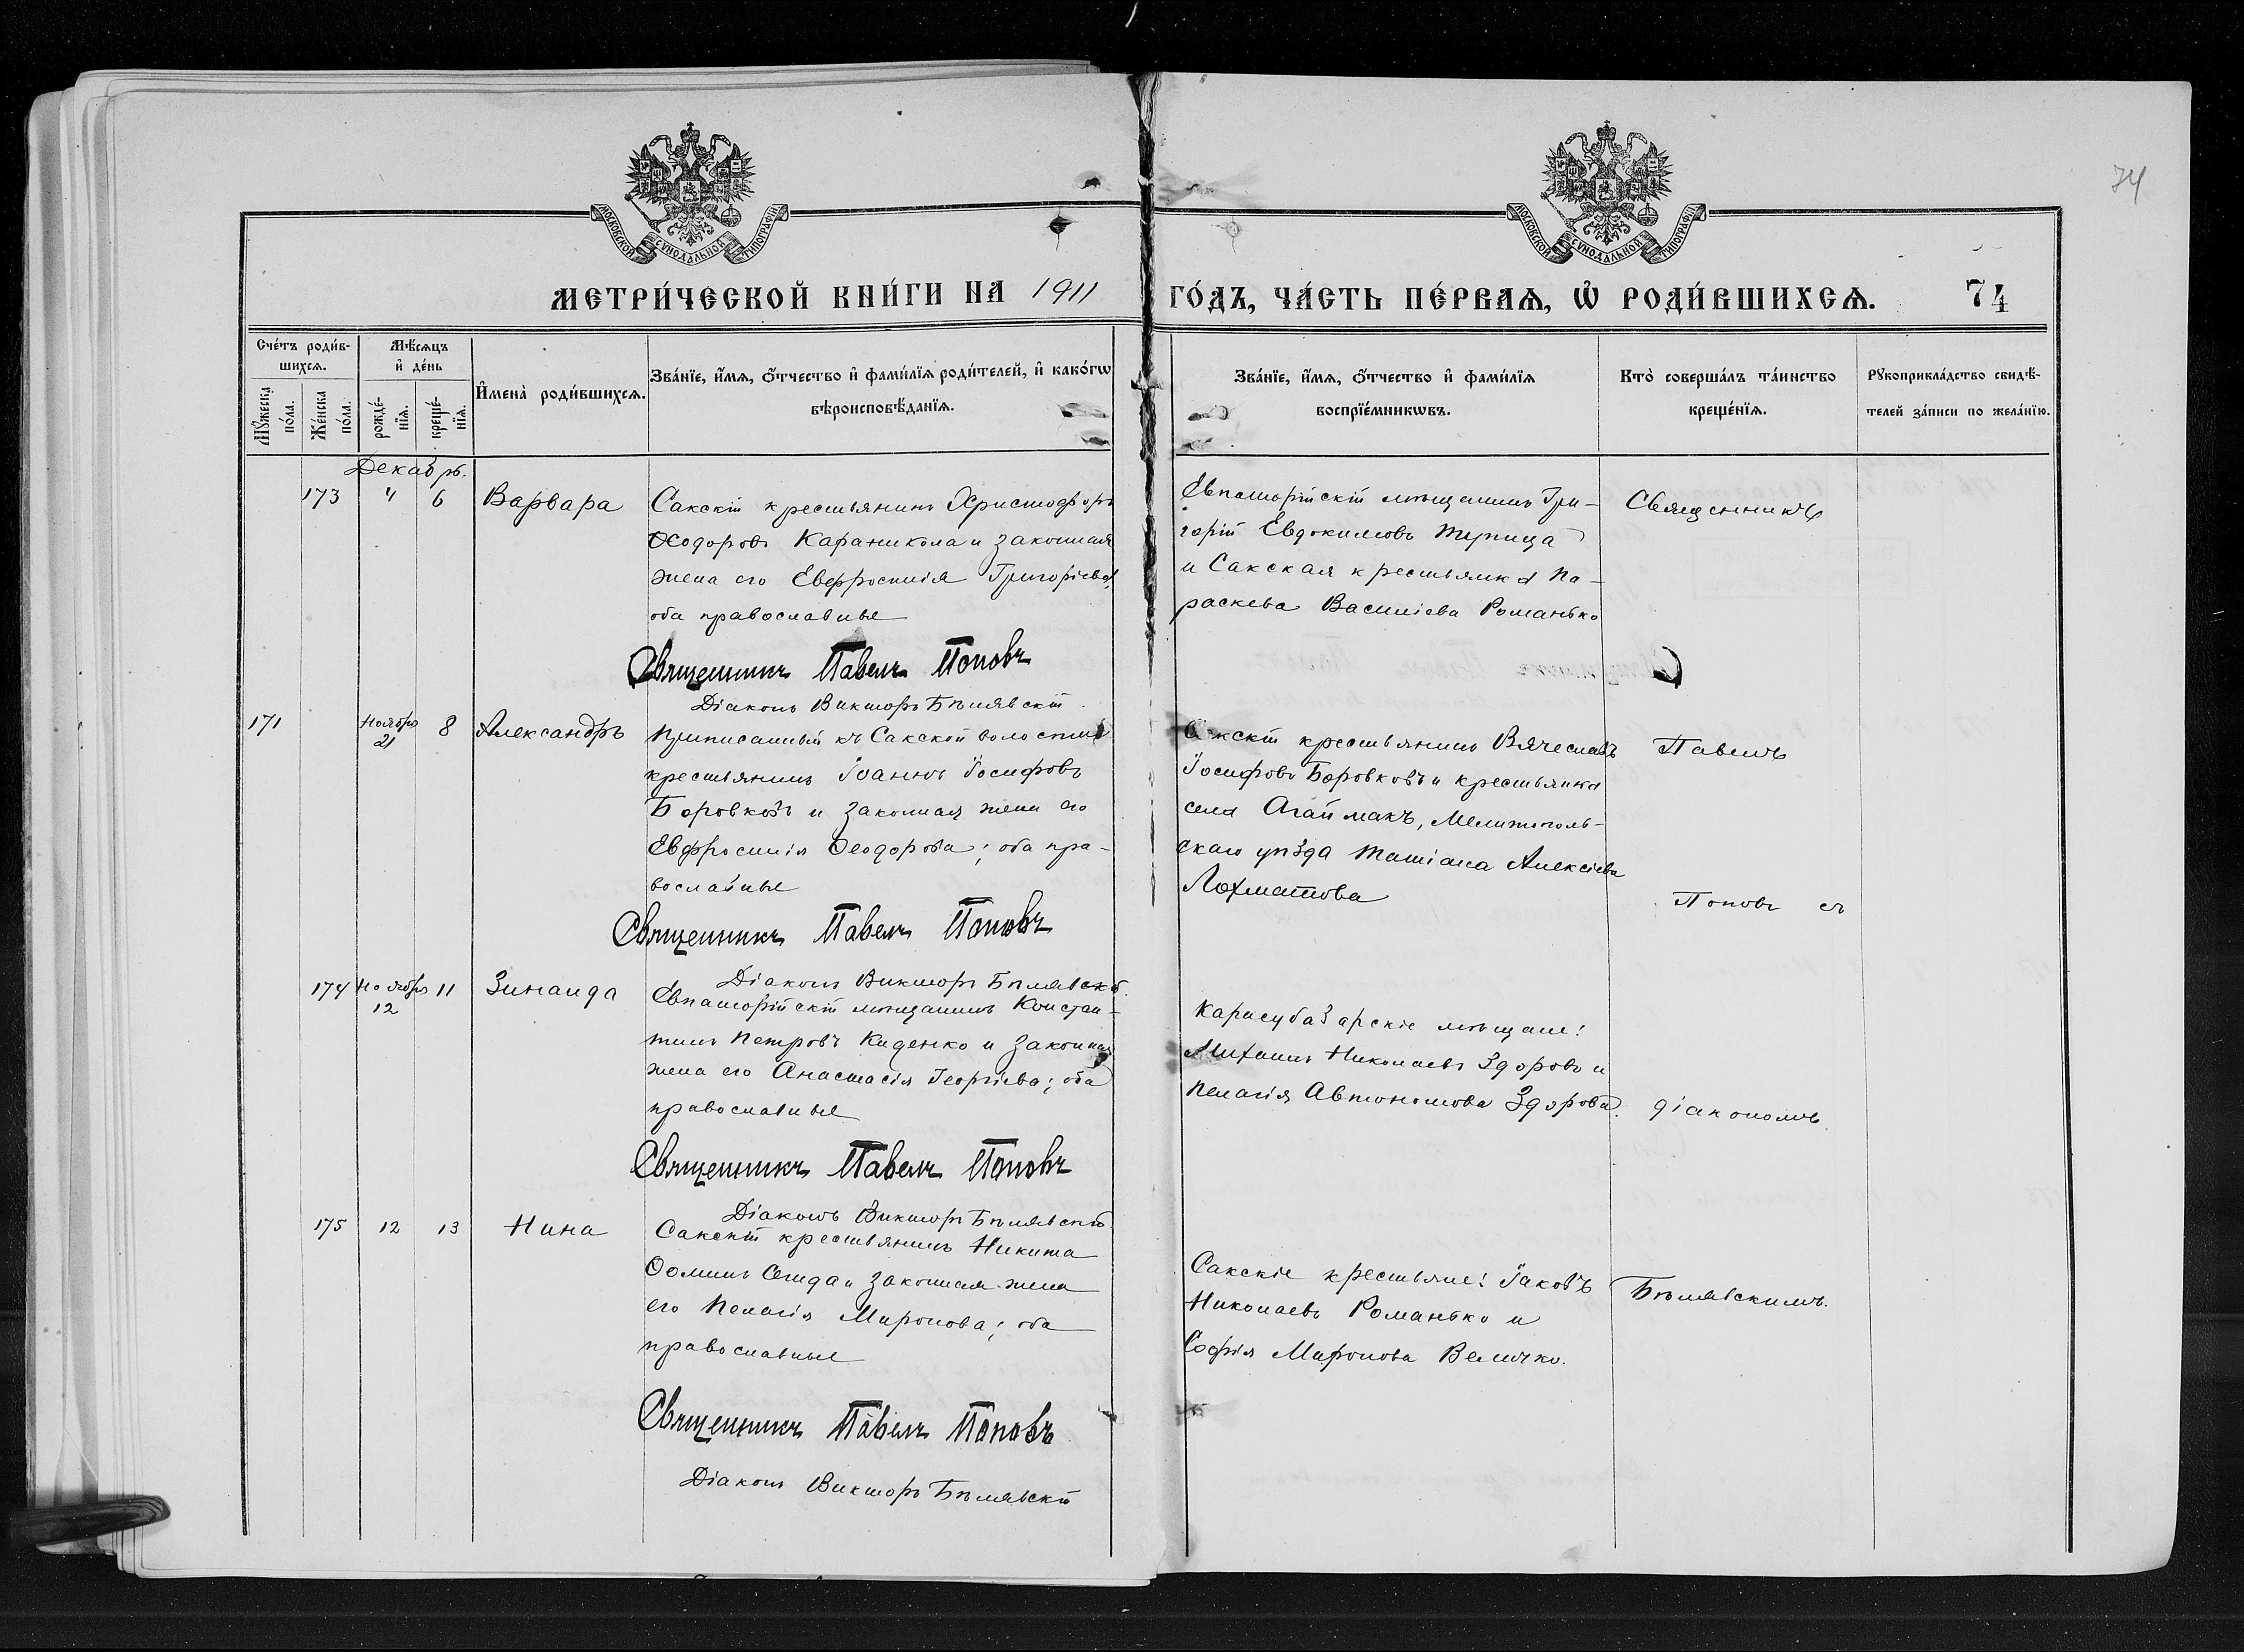 МОСКОВСКОЙ СѴНОДАЛЬНОЙ ТИПОГРАФІИ
МОСКОВСКОЙ СѴНОДАЛЬНОЙ ТИПОГРАФІИ
74
МЕТРИ́ЧЕСКОЙ КНИ́ГИ НА 1911
ГО́ДЪ, ЧА́СТЬ ПЕ́РВАѦ, Ѡ҆ РОДИ́ВШИХСѦ. 74
Сче́тъ роди́в-
шихсѧ.
Мѣ́сѧцъ
и҆ де́нь
Мꙋ́жеска
по́ла.
Же́нска
по́ла.
рожде́-
нїѧ.
креще́-
нїѧ.
И҆мена̀ роди́вшихсѧ.
Зва́нїе, и҆́мѧ, ѻ҆́тчество и҆ фами́лїѧ роди́телей, и҆ како́гѡ
вѣроисповѣ́данїѧ.
Зва́нїе, и҆́мѧ, ѻ҆́тчество и҆ фами́лїѧ
воспрїе́мникѡвъ.
Кто̀ соверша́лъ та́инство
креще́нїѧ.
Рꙋкоприкла́дство свидѣ́-
телей за́писи по жела́нїю.
Декабрь.
173 4 6 Варвара
Сакскій крестьянинъ Христофоръ
Ѳеодоровъ Караникола и законная
жена его Евфросинія Григоріева,
оба православные
Священникъ Павелъ Поповъ
Діаконъ Викторъ Бѣлявскій.
Евпаторійскій мѣщанинъ Гри-
горій Евдокимовъ Турица
и Сакская крестьянка Па-
раскева Василіева Романько
Священникъ
171 Ноября 21 8 Александръ
Приписанный къ Сакской волости
крестьянинъ Іоаннъ Іосифовъ
Боровковъ и законная жена его
Евфросинія Ѳеодорова; оба пра-
вославные
Священникъ Павелъ Поповъ
Діаконъ Викторъ Бѣлявскій.
Сакскій крестьянинъ Вячеславъ
Іосифовъ Боровковъ и крестьянка
села Агайманъ, Мелитополь-
скаго уѣзда Татіана Алексіева
Лохматова
Павелъ
Поповъ съ
174 Ноября 12 11 Зинаида
Евпаторійскій мѣщанинъ Констан-
тинъ Петровъ Киденко и законная
жена его Анастасія Георгіева; оба
православные
Священникъ Павелъ Поповъ
Діаконъ Викторъ Бѣлявскій
Карасубазарскіе мѣщане:
Михаилъ Николаевъ Здоровъ и
Пелагія Автономова Здорова.
діакономъ
175 12 13 Нина
Сакскій крестьянинъ Никита
Ѳоминъ и законная жена
его Пелагія Миронова; оба
православные
Священникъ Павелъ Поповъ
Діаконъ Викторъ Бѣлявскій
Сакскіе крестьяне: Іаковъ
Николаевъ Романько и
Софія Миронова Величко.
Бѣлявскимъ.